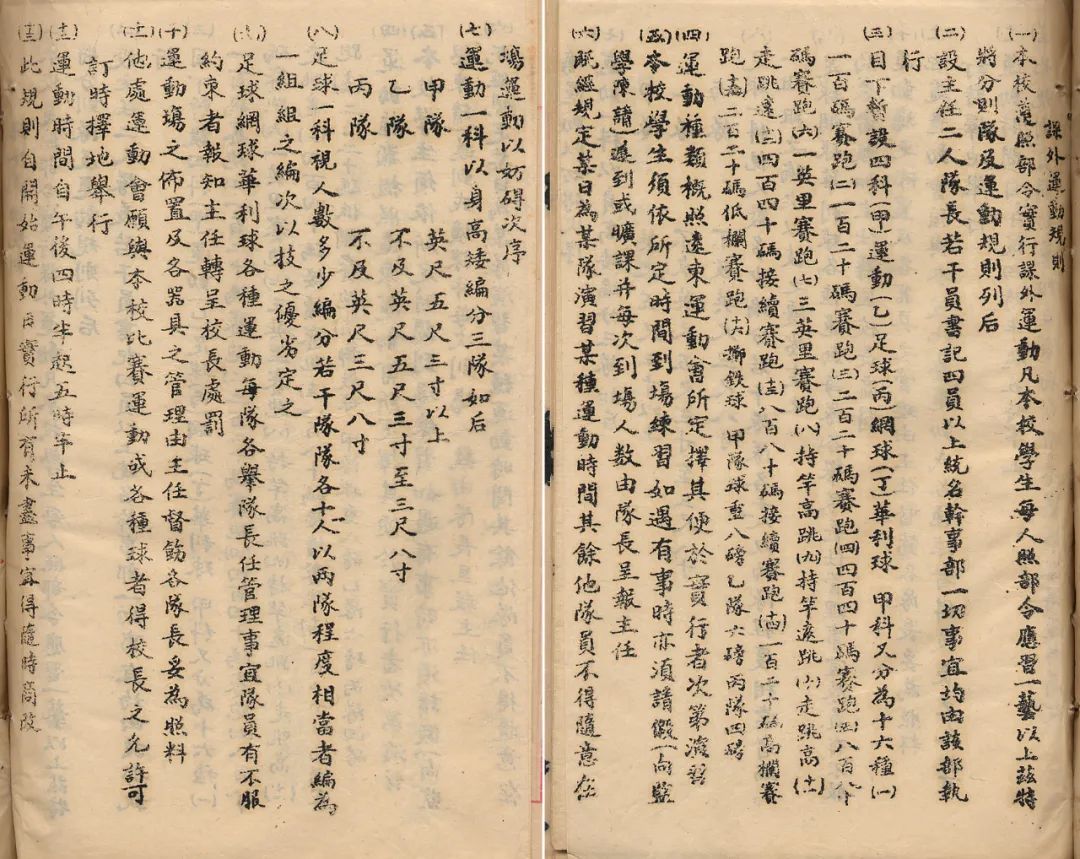 課外運動規則
(一)本校遵照部令實行課外運動凡本校學生每人照部令應習一藝以上茲特
將分則隊及運動規則列后
(二)設主任二人隊長若干員書記四員以上統名幹事部一切事宜均由該部執
行
(三)目下暫設四科(甲)運動(乙)足球(丙)網球(丁)華利球 甲科又分為十六種(一)
一百碼賽跑(二)一百二十碼賽跑(三)二百二十碼賽跑(四)四百四十碼賽跑(五)八百八十
碼賽跑(六)一英里賽跑(七)三英里賽跑(八)持竿高跳(九)持竿遠跳(十)走跳高(十一)
走跳遠(十二)四百四十碼接續賽跑(十三)八百八十碼接續賽跑(十四)一百二十碼高欄賽
跑(十五)二百二十碼低欄賽跑(十六)擲鉄球 甲隊球重八磅乙隊六磅丙隊四磅
(四)運動種類概照遠東運動會所定擇其便於實行者次第演習
(五)本校學生須依所定時間到場練習如遇有事時亦須請假(向監
學陳請)遲到或曠課并每次到場人數由隊長呈報主任
(六)既經規定某日為某隊演習某種運動時間其餘他隊員不得隨意在
場運動以妨碍次序
(七)運動一科以身高矮編分三隊如后
甲隊 英尺五尺三寸以上
乙隊 不及英尺五尺三寸至三尺八寸
丙隊 不及英尺三尺八寸
(八)足球一科視人數多少編分若干隊隊各十人以兩隊程度相當者編為
一組組之編次以技之優劣定之
(九)足球網球華利球各種運動每隊各舉隊長任管理事宜隊員有不服
約束者報知主任轉呈校長處罰
(十)運動場之佈置及各器具之管理由主任督飭各隊長妥為照料
(十一)他處運動會願與本校比賽運動或各種球者得校長之允許可
訂時擇地舉行
(十二)運動時間自午後四時半起五時半止
(十三)此規則自開始運動日實行所有未盡事宜得隨時商改